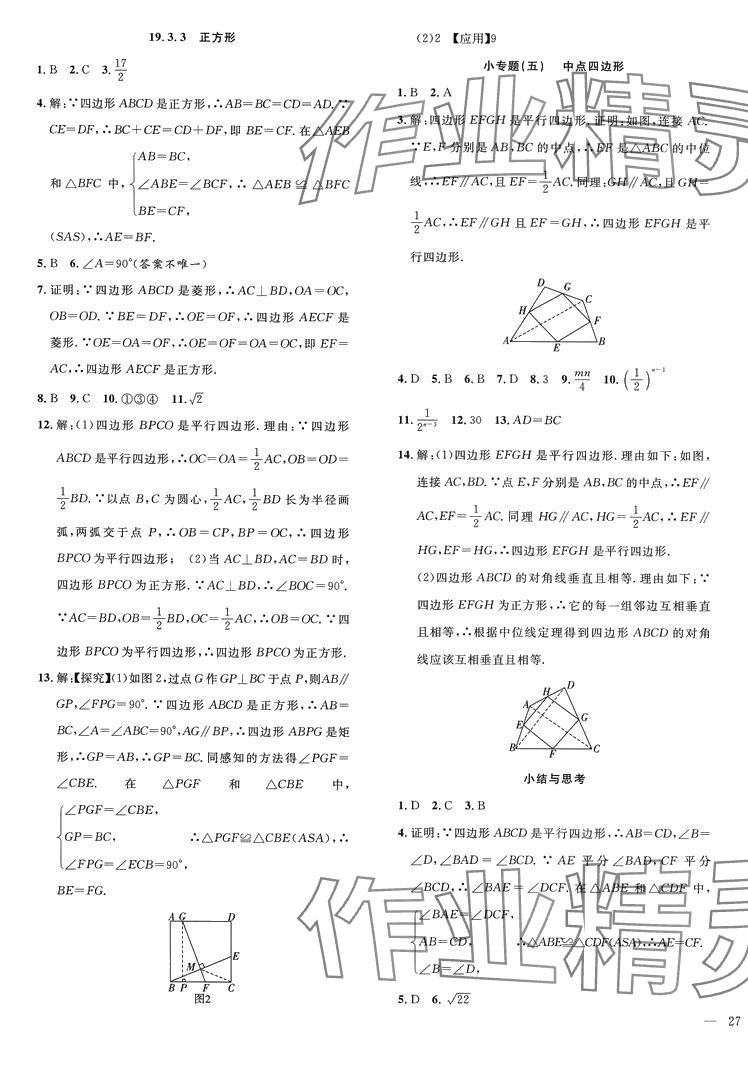 19.3.3 正方形
1. B 2. C 3. 17/2
4. 解:∵四边形 ABCD 是正方形,∴AB=BC=CD=AD. ∵
CE=DF,∴BC+CE=CD+DF,即 BE=CF. 在△AEB
和△BFC 中,{AB=BC,
∠ABE=∠BCF,∴△AEB≌△BFC
BE=CF,
(SAS),∴AE=BF.
5. B 6. ∠A=90°(答案不唯一)
7. 证明:∵四边形 ABCD 是菱形,∴AC⊥BD,OA=OC,
OB=OD. ∵BE=DF,∴OE=OF,∴四边形 AECF 是
菱形. ∵OE=OA=OF,∴OE=OF=OA=OC,即 EF=
AC,∴四边形 AECF 是正方形.
8. B 9. C 10. ①③④ 11. √2
12. 解:(1)四边形 BPCO 是平行四边形. 理由:∵四边形
ABCD 是平行四边形,∴OC=OA=1/2AC,OB=OD=
1/2BD. ∵以点 B,C 为圆心,1/2AC,1/2BD 长为半径画
弧,两弧交于点 P,∴OB=CP,BP=OC,∴四边形
BPCO 为平行四边形; (2)当 AC⊥BD,AC=BD 时,
四边形 BPCO 为正方形. ∵AC⊥BD,∴∠BOC=90°.
∵AC=BD,OB=1/2BD,OC=1/2AC,∴OB=OC. ∵四
边形 BPCO 为平行四边形,∴四边形 BPCO 为正方形.
13. 解:【探究】(1)如图 2,过点 G 作 GP⊥BC 于点 P,则AB∥
GP,∠FPG=90°. ∵四边形 ABCD 是正方形,∴AB=
BC,∠A=∠ABC=90°,AG∥BP,∴四边形 ABPG 是矩
形,∴GP=AB,∴GP=BC. 同感知的方法得∠PGF=
∠CBE. 在 △PGF 和 △CBE 中,
{∠PGF=∠CBE,
GP=BC, ∴△PGF≌△CBE(ASA),∴
∠FPG=∠ECB=90°,
BE=FG.
A G D
E
M
B P F C
图2
(2)2 【应用】9
小专题(五) 中点四边形
1. B 2. A
3. 解:四边形 EFGH 是平行四边形. 证明:如图,连接 AC.
∵E,F 分别是 AB,BC 的中点,∴EF 是△ABC 的中位
线,∴EF∥AC,且 EF=1/2AC. 同理:GH∥AC,且GH=
1/2AC,∴EF∥GH 且 EF=GH,∴四边形 EFGH 是平
行四边形.
D G
C
H
F
A E B
4. D 5. B 6. B 7. D 8. 3 9. mn/4 10. (1/2)ⁿ⁻¹
11. 1/2ⁿ⁻³ 12. 30 13. AD=BC
14. 解:(1)四边形 EFGH 是平行四边形. 理由如下:如图,
连接 AC,BD. ∵点 E,F 分别是 AB,BC 的中点,∴EF∥
AC,EF=1/2AC. 同理 HG∥AC,HG=1/2AC,∴EF∥
HG,EF=HG,∴四边形 EFGH 是平行四边形.
(2)四边形 ABCD 的对角线垂直且相等. 理由如下:∵
四边形 EFGH 为正方形,∴它的每一组邻边互相垂直
且相等,∴根据中位线定理得到四边形 ABCD 的对角
线应该互相垂直且相等.
H D
A
G
E
B F C
小结与思考
1. D 2. C 3. B
4. 证明:∵四边形 ABCD 是平行四边形,∴AB=CD,∠B=
∠D,∠BAD=∠BCD. ∵AE 平分∠BAD,CF 平分
∠BCD,∴∠BAE=∠DCF. 在△ABE 和△CDF 中,
{∠BAE=∠DCF,
AB=CD, ∴△ABE≌△CDF(ASA),∴AE=CF.
∠B=∠D,
5. D 6. √22
— 27
作业精灵
作业精灵